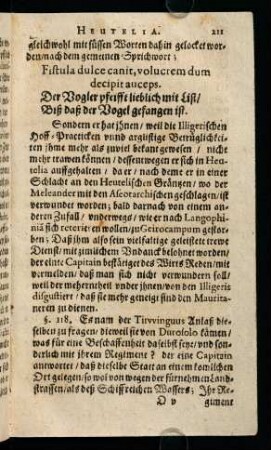 HEUTELIA. 211
gleichwohl mit süssen Worten dahin gelocket wor-
den/nach dem gemeinen Sprichwort;
Fistula dulce canit, volucrem dum
decipit auceps.
Der Vogler pfeifft lieblich mit List/
Biß daß der Vogel gefangen ist.
Sondern er hat jhnen / weil die Illigerischen
Hoff-Practicken vnd arglistige Betrüglichkei-
ten/jhme mehr als zuviel bekant gewesen / nicht
mehr trawen können / dessentwegen er sich in Heu-
telia auffgehalten / da er / nach deme er in einer
Schlacht an den Heutelischen Gräntzen / wo der
Harleander mit den Ascotarchischen geschlagen/ist
verwundet worden; bald darnach von einem an-
deren Zufall / vnderwegs / wie er nach Langophi-
niâ sich reterieren wollen/zu Geirocampum gestor-
ben; Daß jhm also sein vielfaltige geleistete trewe
Dienst/mit zimlichem Vndanck belohnet worden/
der ander Capitain bestätiget des Wirts Reden/mit
vermelden/ daß man sich nicht verwundern soll/
weil der mehrentheil vnder jhnen/von den Illigeris
disgustiert / daß sie mehr geneigt sind den Maurita-
neren zu dienen.
§. 218. Es nam der Tirvvinguus Anlaß die-
selben zu fragen/ dieweil sie von Durosolo kämen/
was für eine Beschaffenheit daselbst seye/ vnd son-
derlich mit jhrem Regiment? der eine Capitain
antwortet / daß dieselbe Statt an einem komlichen
Ort gelegen/so wol von wegen der fürnehmen Land-
strassen/als deß Schiffreichen Wassers; Ihr Re-
O v giment